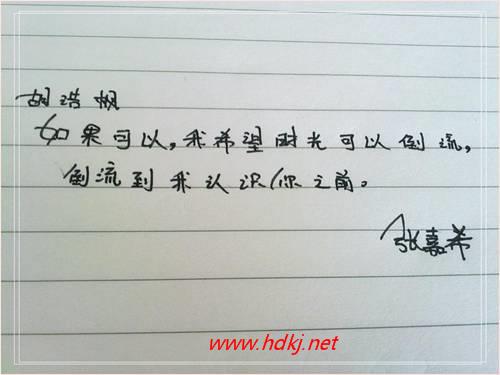 胡浩帆
如果可以,我希望时光可以倒流,
倒流到我认识你之前。
张嘉希
www.hdkj.net